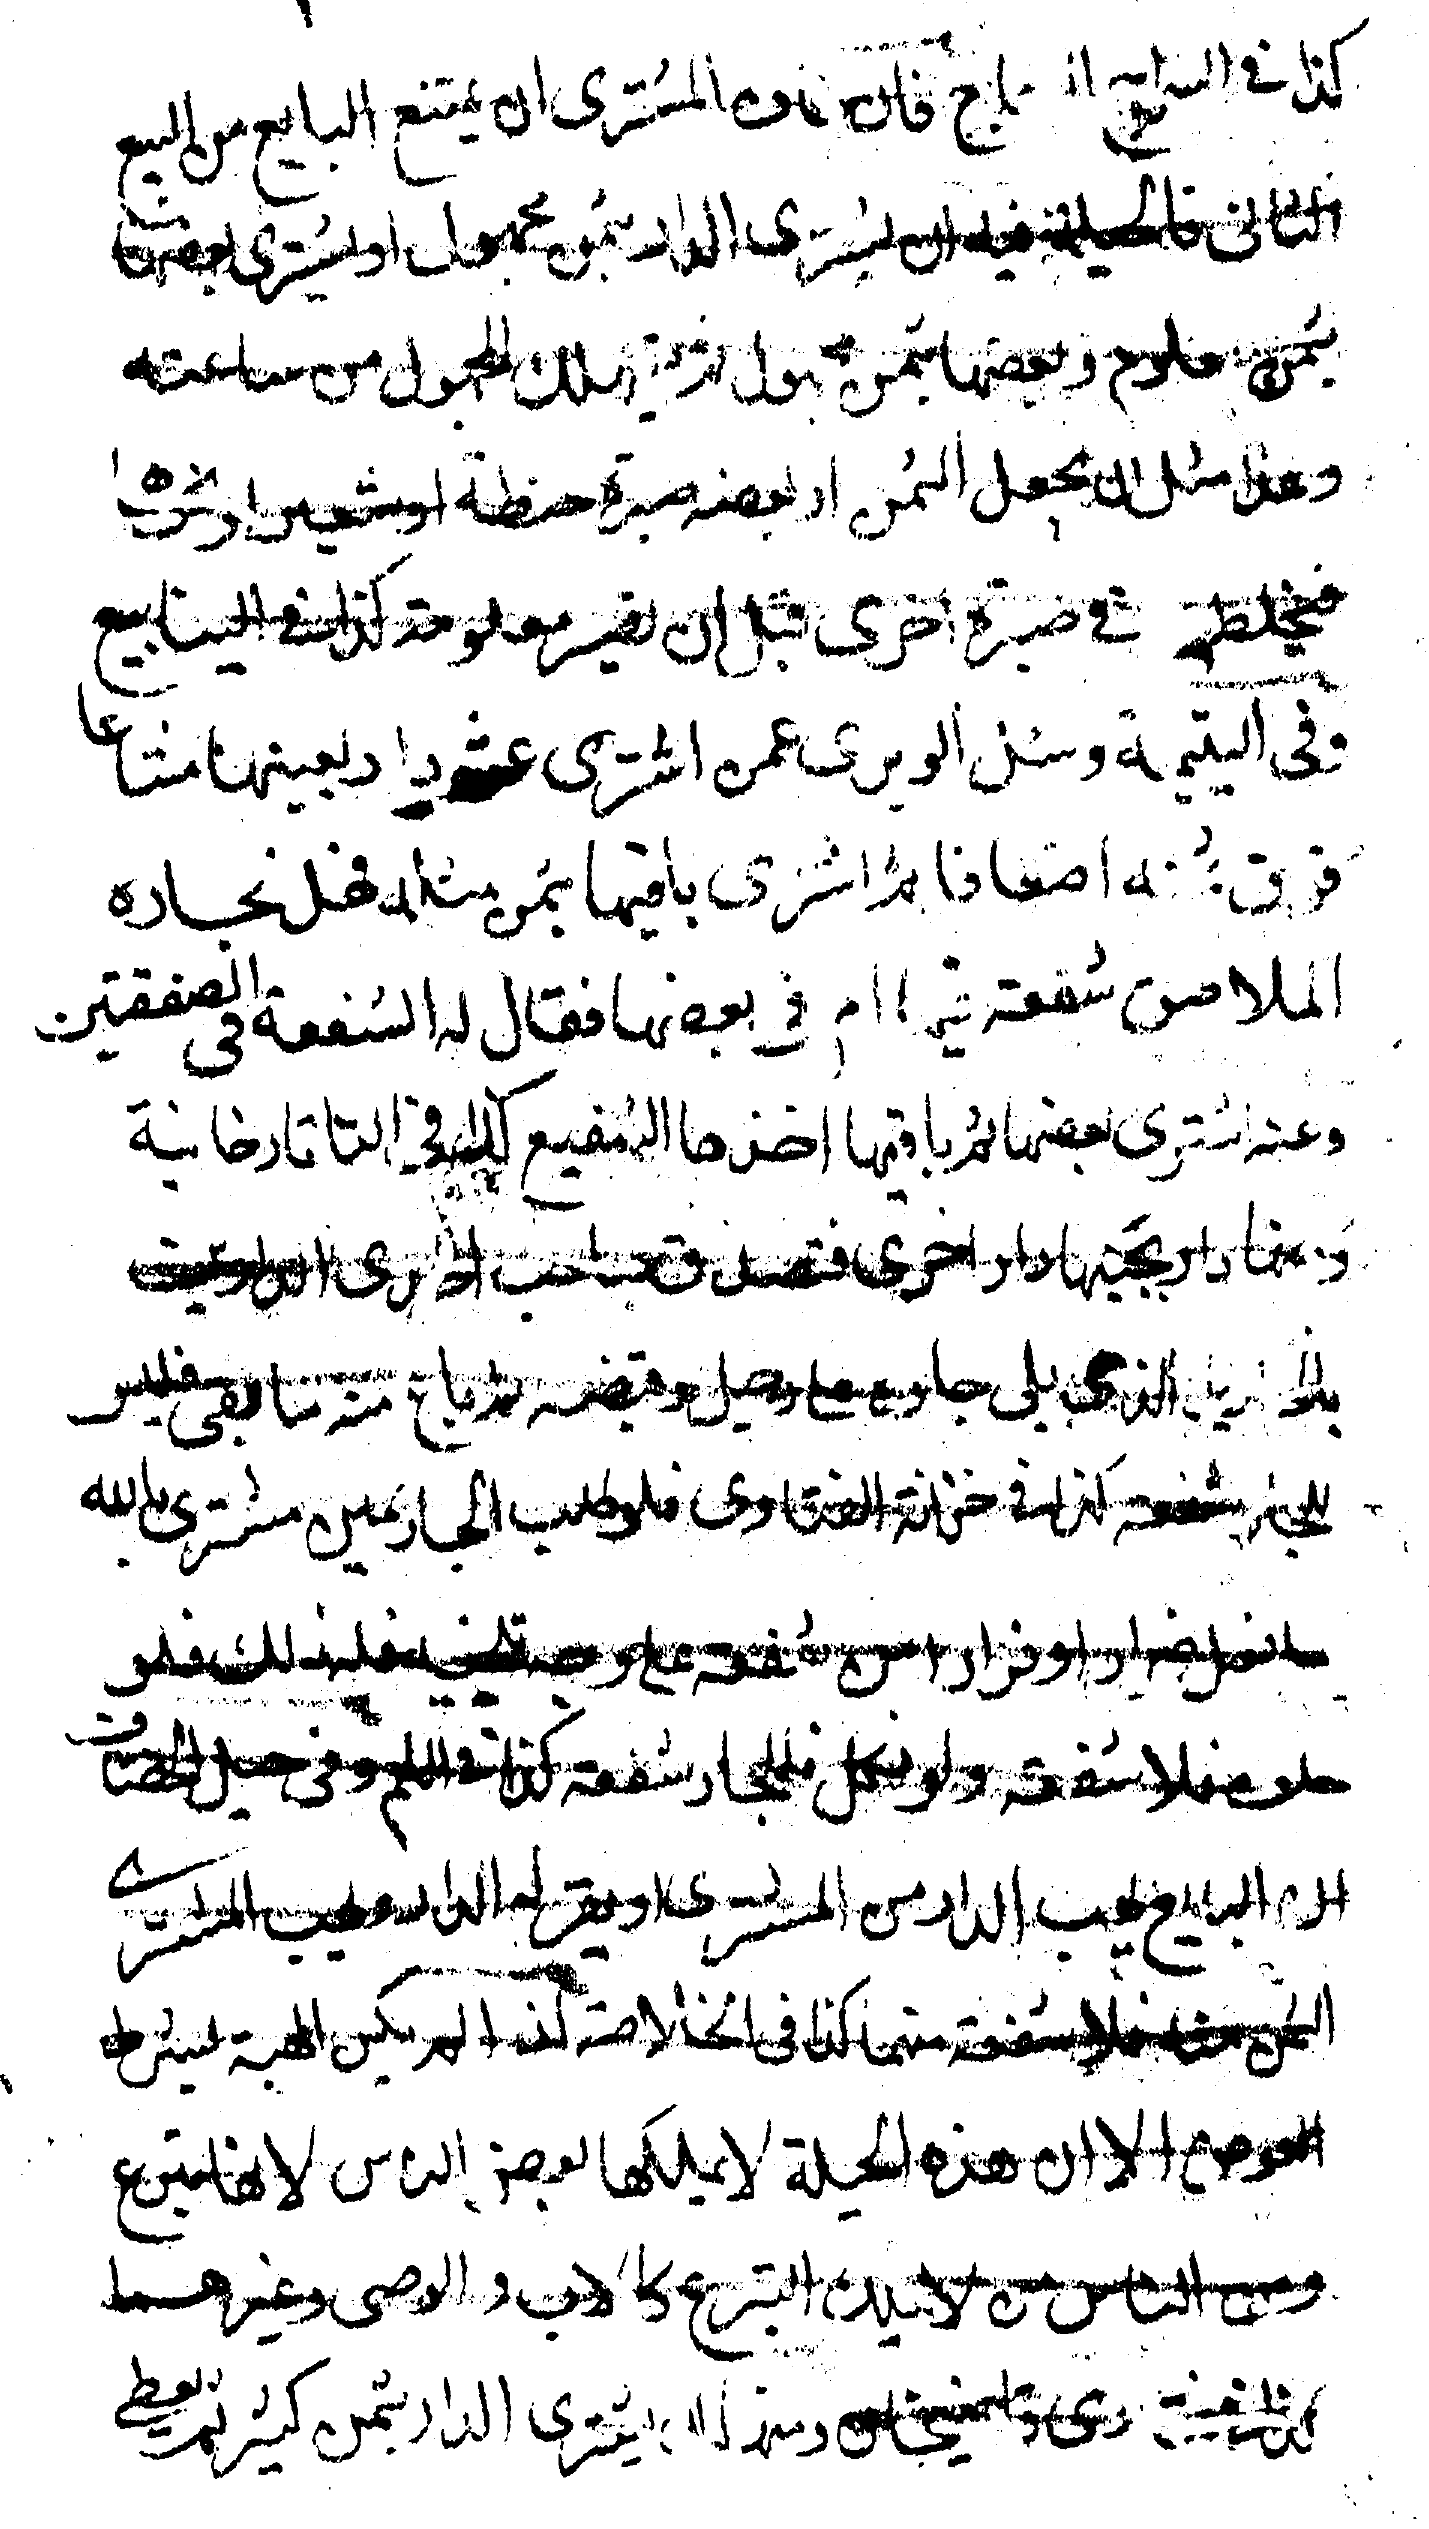 كذا في السراج فان خاف المشترى ان يمتنع البايع من البيع
الثانى فالحيلة فيه ان يشترى الدار بثمن مجهول او يشترى بعضها
بثمن معلوم وبعضها بثمن مجهول ثم يهلك المجهول من ساعته
وهذا مثل ان يجعل الثمن او بعضه صبرة حنطة او شعير او نحوها
فيخلطه في صبرة اخرى قبل ان تصير معلومة كذا في الينابيع
وفى اليتيمة وسئل الوبرى عمن اشترى عشر دار بعينها مشاعا
فوق ثمنه اضعافا ثم اشترى باقيها بثمن مثله فهل لجاره
الملاصق شفعة فيها ام في بعضها فقال له الشفعة في الصفقتين
وعنه اشترى بعضها ثم باقيها اخذها الشفيع كذا في التاتارخانية
ومنها دار بجنبها دار اخرى فتصدق صاحب الدار
الذي يلى جاره على رجل وقبضه ثم باع منه ما بقى فليس
للجار شفعة كذا في خزانة الفتاوى فلو طلب الجار يمين مشترى بالله
ما فعل ضرارا او فرارا من شفعة على وجه فله ذلك فلو
حلف فلا شفعة ولو نكل فللجار شفعة كذا في وفى حيل الخصاف
البايع يهب الدار من المشترى او يقر له الدار ويهب المشترى
الثمن منه فلا شفعة منهما كذا في الخلاصة اذا لم يكن الهبة بشرط
العوض الا ان هذه الحيلة لا يملكها بعض الناس لانها تبرع
ومن الناس من لا يملك التبرع كالاب والوصى وغيرهما
كذا في قاضيخان ومنها ان يشترى الدار بثمن كثير ثم يعطى